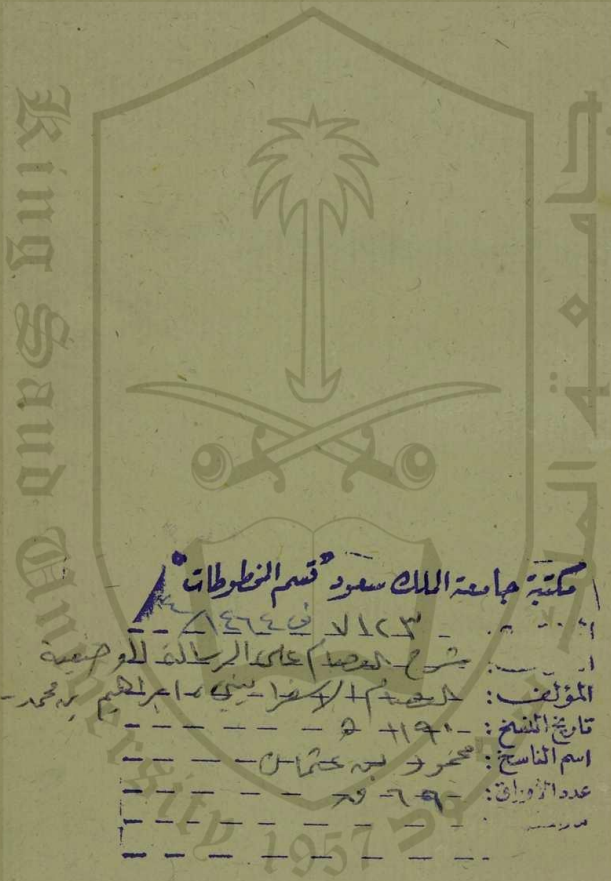 King Saud University
1957
مكتبة جامعة الملك سعود "قسم المخطوطات"
٧١٢٣ ف ١٤٦٤ / ٤
شرح العصام على الرسالة الوضعية
المؤلف: العصام الاسفراييني، ابراهيم بن محمد
تاريخ النسخ: ١١٩٠ ه
اسم الناسخ: محمود بن عثمان
عدد الأوراق: ٦٩